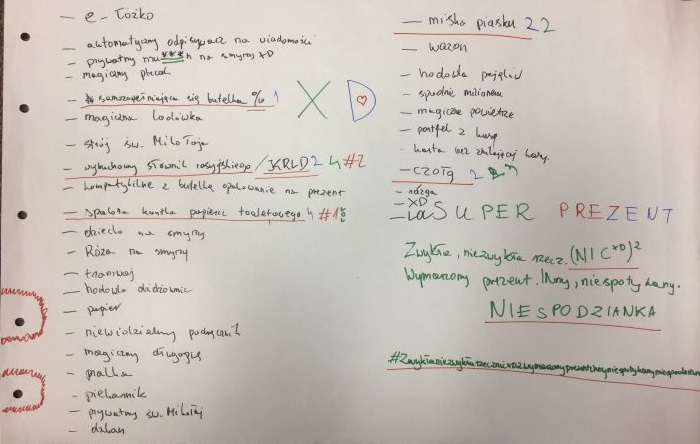 — e-łóżko
— automatyczny odpisywacz na wiadomości
— prywatny mu***h na smyczy XD
— magiczny plecak
— samozapełniająca się butelka % 1
— magiczna lodówka
— strój św. Mikołaja
— wybuchowy słownik rosyjskiego / KRLD 2 4 #2
— kompatybilne z butelką opakowanie na prezent
— spalona kartka papieru toaletowego 4 #1
— dziecko na smyczy
— Róża na smyczy
— tramwaj
— hodowla
— papier
— niewidzialny podręcznik
— magiczny długopis
— pralka
— piekarnik
— prywatny św. Mikołaj
— dzban
X D
— miska piasku 2 2
— wazon
— hodowla
— spodnie milionera
— magiczne powietrze
— portfel z
— karta bez
— czołg 2
— rózga
— XD
— SUPER PREZENT
Zwykła, niezwykła rzecz. (NIC XD)2
Wymarzony prezent. Inny, niespotykany.
NIESPODZIANKA